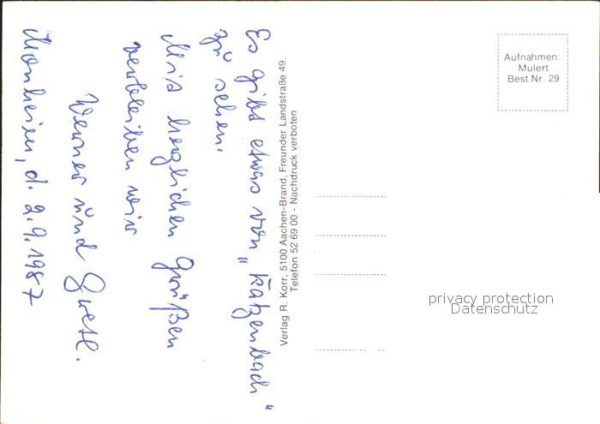 Es gibt etwas von „Katzenbach“
zu sehen.
Mit herzlichen Grüßen
verbleiben wir
Werner und Gretl.
Monheim, d. 2.9.1987
Verlag R. Korr, 5100 Aachen-Brand, Freunder Landstraße 49,
Telefon 52 69 00 - Nachdruck verboten
Aufnahmen:
Mulert
Best.Nr. 29
privacy protection
Datenschutz